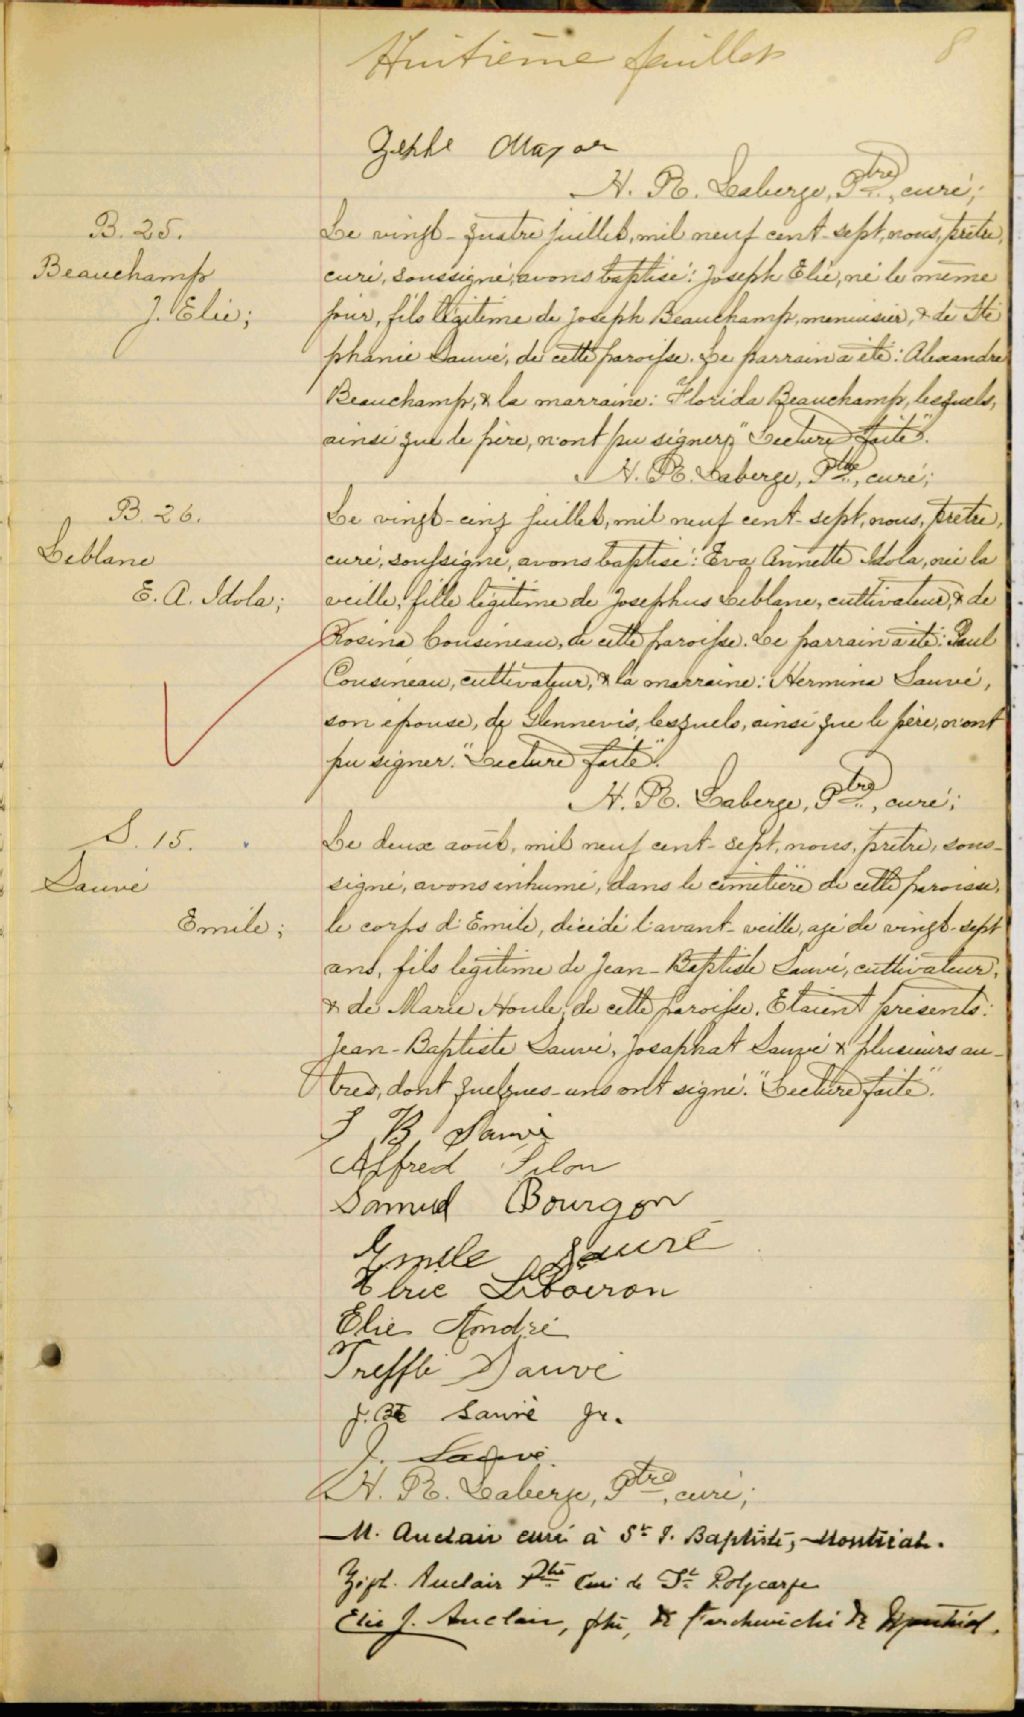 Huitième feuillet 8
H. R. Laberge, Ptre, curé;
B. 25.
Beauchamp
J. Elie;
Le vingt-quatre juillet, mil neuf cent-sept, nous, prêtre,
curé, soussigné, avons baptisé: Joseph Elie, né le même
jour, fils légitime de Joseph Beauchamp, menuisier, & de Sté
phanie Sauvé, de cette paroisse. Le parrain a été: Alexandre
Beauchamp, & la marraine: Florida Beauchamp, lesquels,
ainsi que le père, n'ont pu signer. "Lecture faite".
H. R. Laberge, Ptre, curé;
B. 26.
Leblanc
E. A. Idola;
Le vingt-cinq juillet, mil neuf cent-sept, nous, prêtre,
curé, soussigné, avons baptisé: Eva Annette Idola, née la
veille, fille légitime de Josephus Leblanc, cultivateur, & de
Rosina Cousineau, de cette paroisse. Le parrain a été: Paul
Cousineau, cultivateur, & la marraine: Hermina Sauvé,
son épouse, de Glennevis, lesquels, ainsi que le père, n'ont
pu signer. "Lecture faite".
H. R. Laberge, Ptre, curé;
S. 15.
Sauvé
Emile;
Le deux août, mil neuf cent-sept, nous, prêtre, sous-
signé, avons inhumé, dans le cimetière de cette paroisse,
le corps d'Emile, décédé l'avant-veille, agé de vingt-sept
ans, fils légitime de Jean-Baptiste Sauvé, cultivateur,
& de Marie Houle, de cette paroisse. Etaient présents:
Jean-Baptiste Sauvé, Josaphat Sauvé & plusieurs au-
tres, dont quelques-uns ont signé. "Lecture faite".
J B Sauvé
Alfred Pilon
Samuel Bourgon
Emile Sauvé
Ulric Liboiron
Elie André
Trefflé Sauvé
J. Bte Sauvé Jr.
J. Sauvé.
H. R. Laberge, Ptre, curé;
M. Auclair curé à St J. Baptiste, Montréal.
Zéph. Auclair Ptre Curé de St Polycarpe
Elie J. Auclair, ptre, de l'archevêché de Montréal.